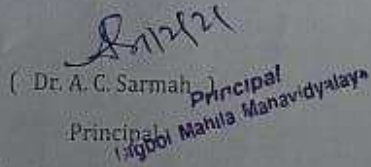 ( Dr. A. C. Sarmah )
Principal
Principal
Mahila Mahavidyalaya